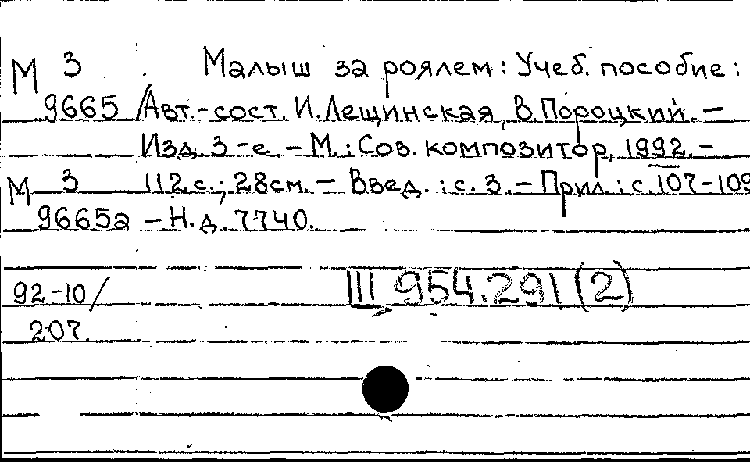 М 3 Малыш за роялем: Учеб. пособие:
9665 /Авт.-сост. И. Лещинская, В. Пороцкий. –
Изд. 3-е. – М.: Сов. композитор, 1992. –
М 3 112 с.; 28 см. – Введ.: с. 3. – Прил.: с. 107-109
9665а – Н.д. 7740.
92-10/ III 954.291 (2)
207.